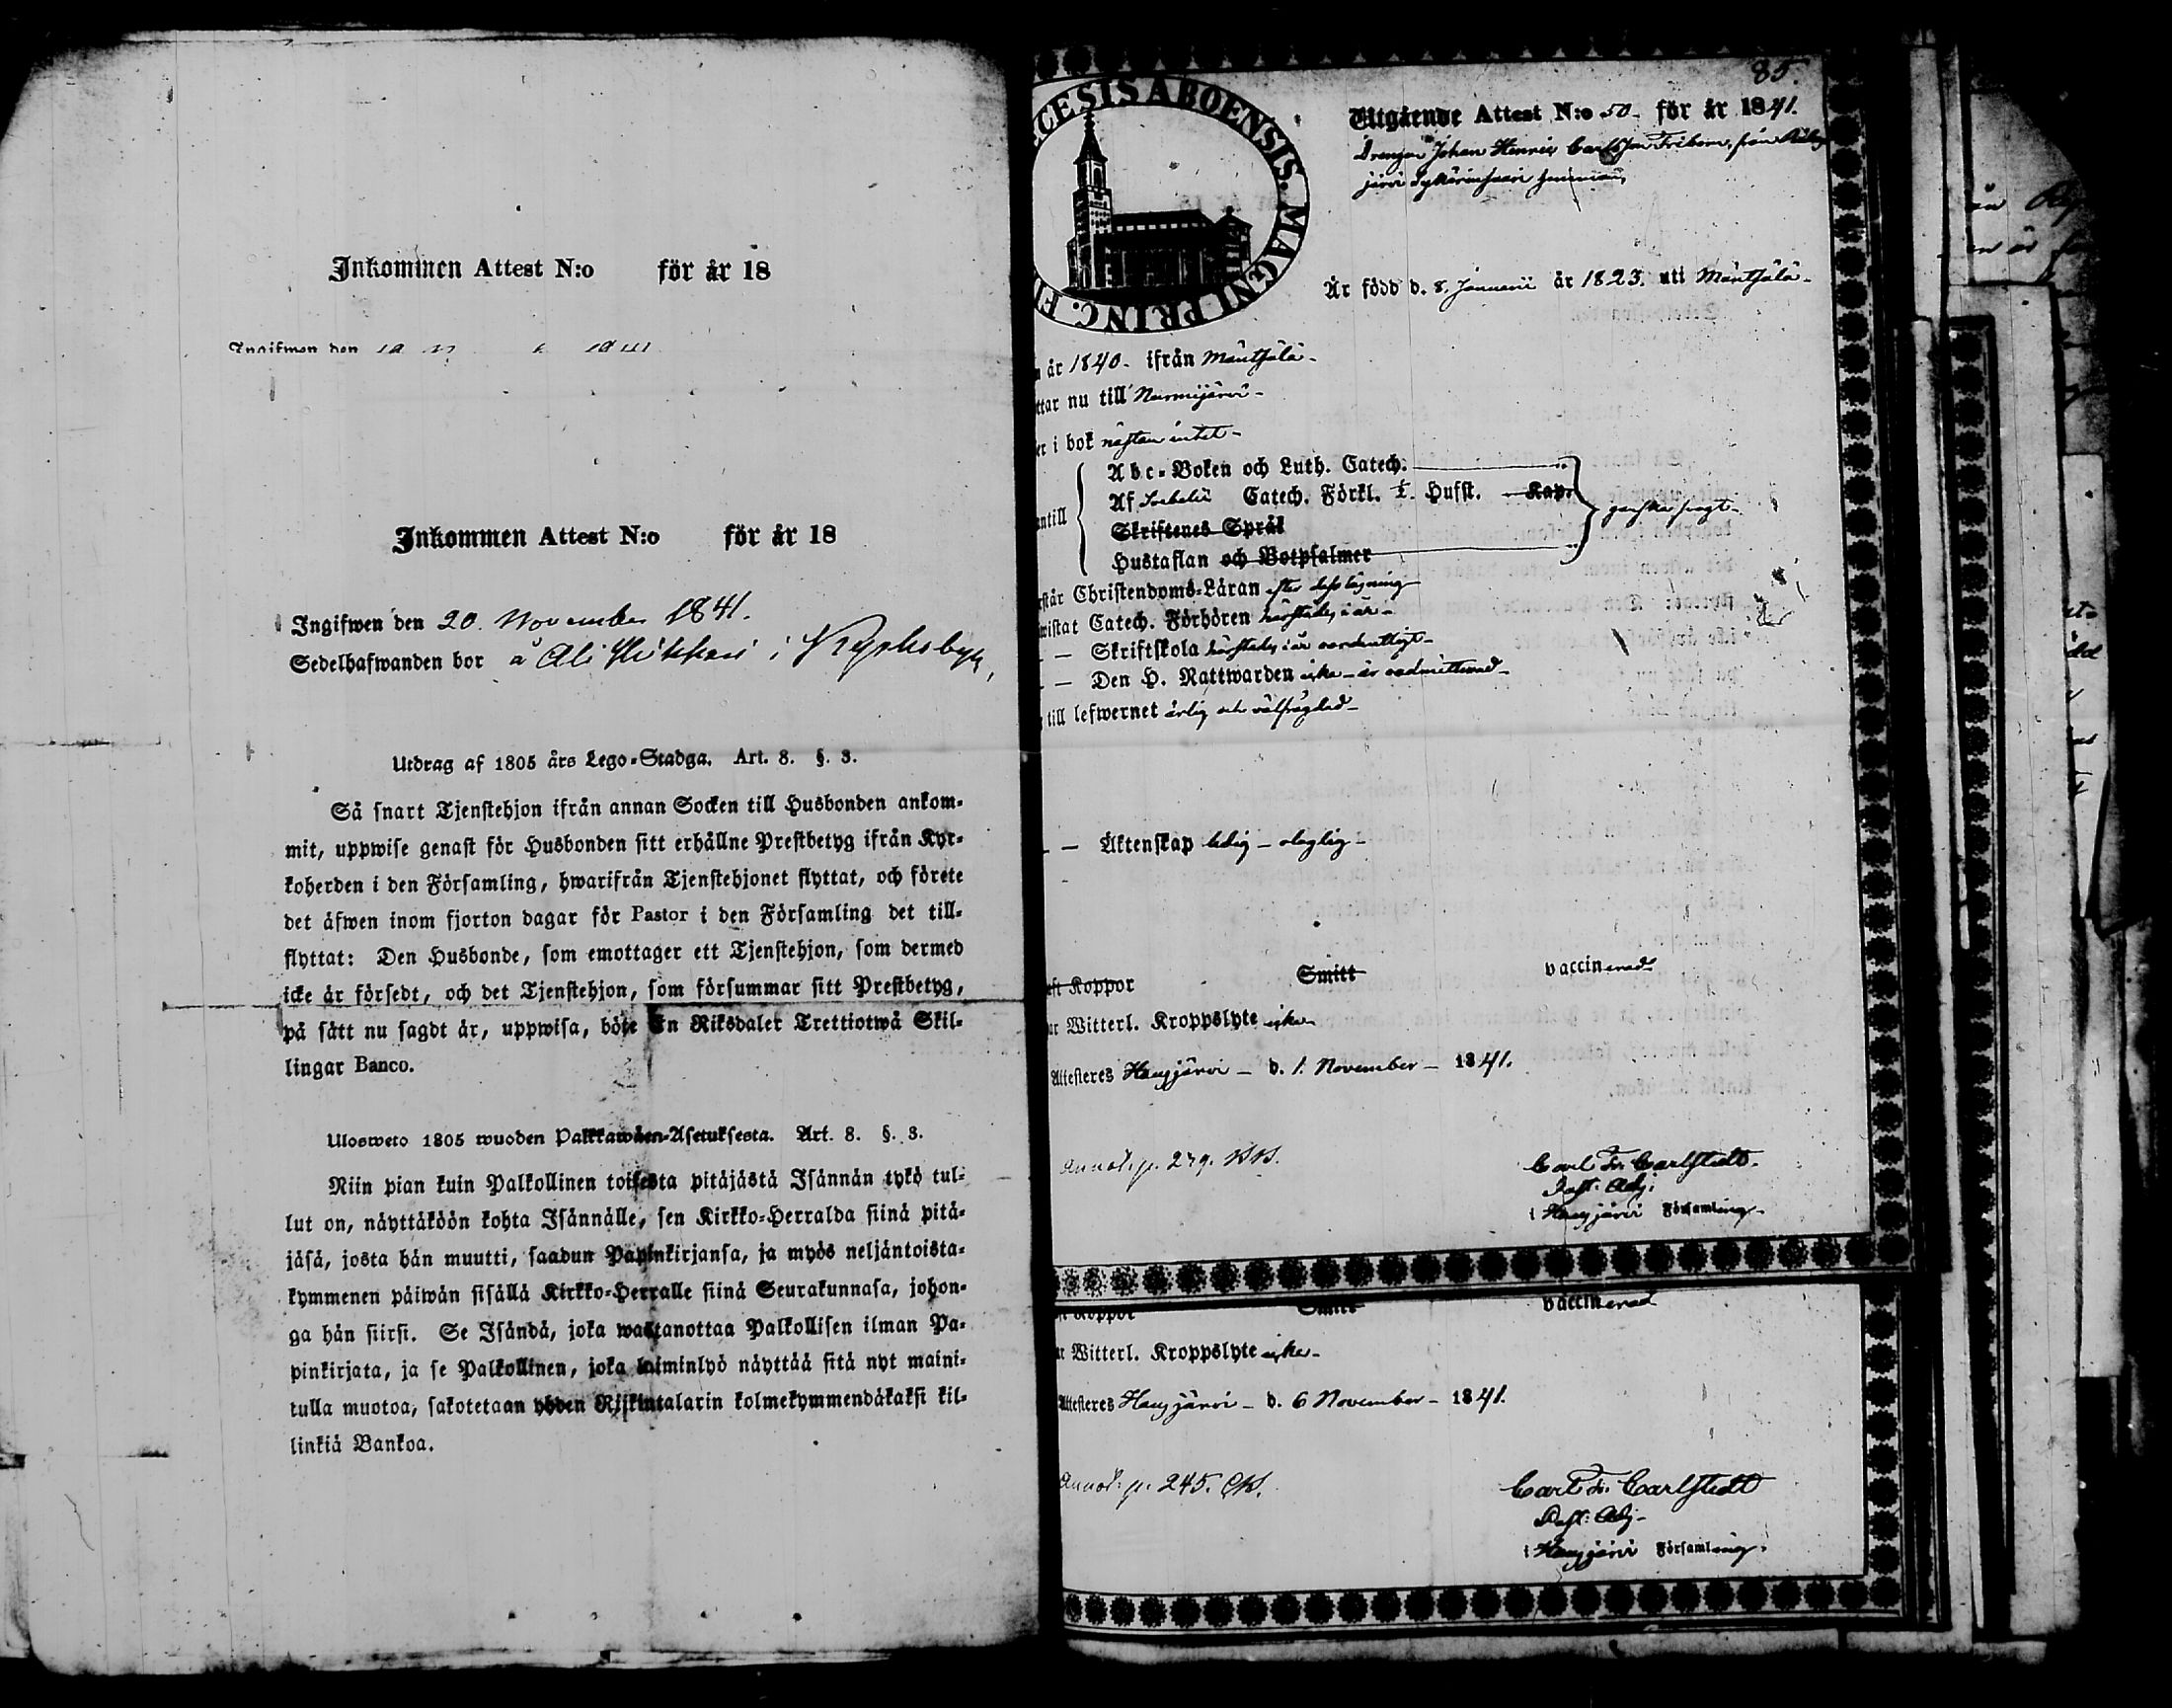 Inkommen Attest N:o för år 18
Ingifwen den
Inkommen Attest N:o för år 18
Ingifwen den 20. November 1841.
Sedelhafwanden bor å Ali
Utdrag af 1805 års Lego-Stadga. Art. 8. §. 3.
Så snart Tjenstehjon ifrån annan Socken till Husbonden ankom-
mit, uppwise genast för Husbonden sitt erhållne Prestbetyg ifrån Kyr-
koherden i den Församling, hwarifrån Tjenstehjonet flyttat, och förete
det äfwen inom fjorton dagar för Pastor i den Församling det till-
flyttat: Den Husbonde, som emottager ett Tjenstehjon, som dermed
icke är försedt, och det Tjenstehjon, som försummar sitt Prestbetyg,
på sätt nu sagdt är, uppwisa, böte En Riksdaler Trettiotwå Skil-
lingar Banco.
Ulosweto 1805 wuoden Palkkawäen-Asetuksesta. Art. 8. §. 3.
Niin pian kuin Palkollinen toisesta pitäjästä Isännän tykö tul-
lut on, näyttäköön kohta Isännälle, sen Kirkko-Herralda siinä pitä-
jäsä, josta hän muutti, saadun Papinkirjansa, ja myös neljäntoista-
kymmenen päiwän sisällä Kirkko-Herralle siinä Seurakunnasa, johon-
ga hän siirsi. Se Isändä, joka wastanottaa Palkollisen ilman Pa-
pinkirjata, ja se Palkollinen, joka laiminlyö näyttää sitä nyt maini-
tulla muotoa, sakotetaan yhden Rijkintalarin kolmekymmendäkaksi kil-
linkiä Bankoa.
85.
CESIS ABOENSIS. MAGNI PRINC. FI
Utgående Attest N:o 50 - för år 1841.
Drengen Johan Henric Carlsson Friborn, från
järvi
Är född d. 8. Januarii år 1823. uti Mäntsälä -
år 1840 - ifrån Mäntsälä -
ttar nu till Nurmijärvi -
er i bok nästan intet -
Abc-Boken och Luth. Catech.
Af Catech. Förkl. Hufst. Kap.
antill
Skriftenes Språk
Hustaflan och Botpsalmer
rstår Christendoms-Läran efter dess lägning
wistat Catech. Förhören härstädes i år -
- — Skriftskola härstädes i år oordentligt -
- — Den H. Nattwarden icke - är oadmitterad -
till lefwernet ärlig och välfrägdad -
- — Äktenskap ledig - olaglig -
ft Koppor Smitt vaccinerad
ar Witterl. Kroppslyte icke
Attesteres Hausjärvi - d. 1. November - 1841.
Annot. p. 279.
Carl Fr. Carlstedt.
Past. Adj.
i Hausjärvi Församling -
ft Koppor Smitt vaccinerad
ar Witterl. Kroppslyte icke -
Attesteres Hausjärvi - d. 6 November - 1841.
Annot. p. 245.
Carl Fr. Carlstedt
Past. Adj -
i Hausjärvi Församling.